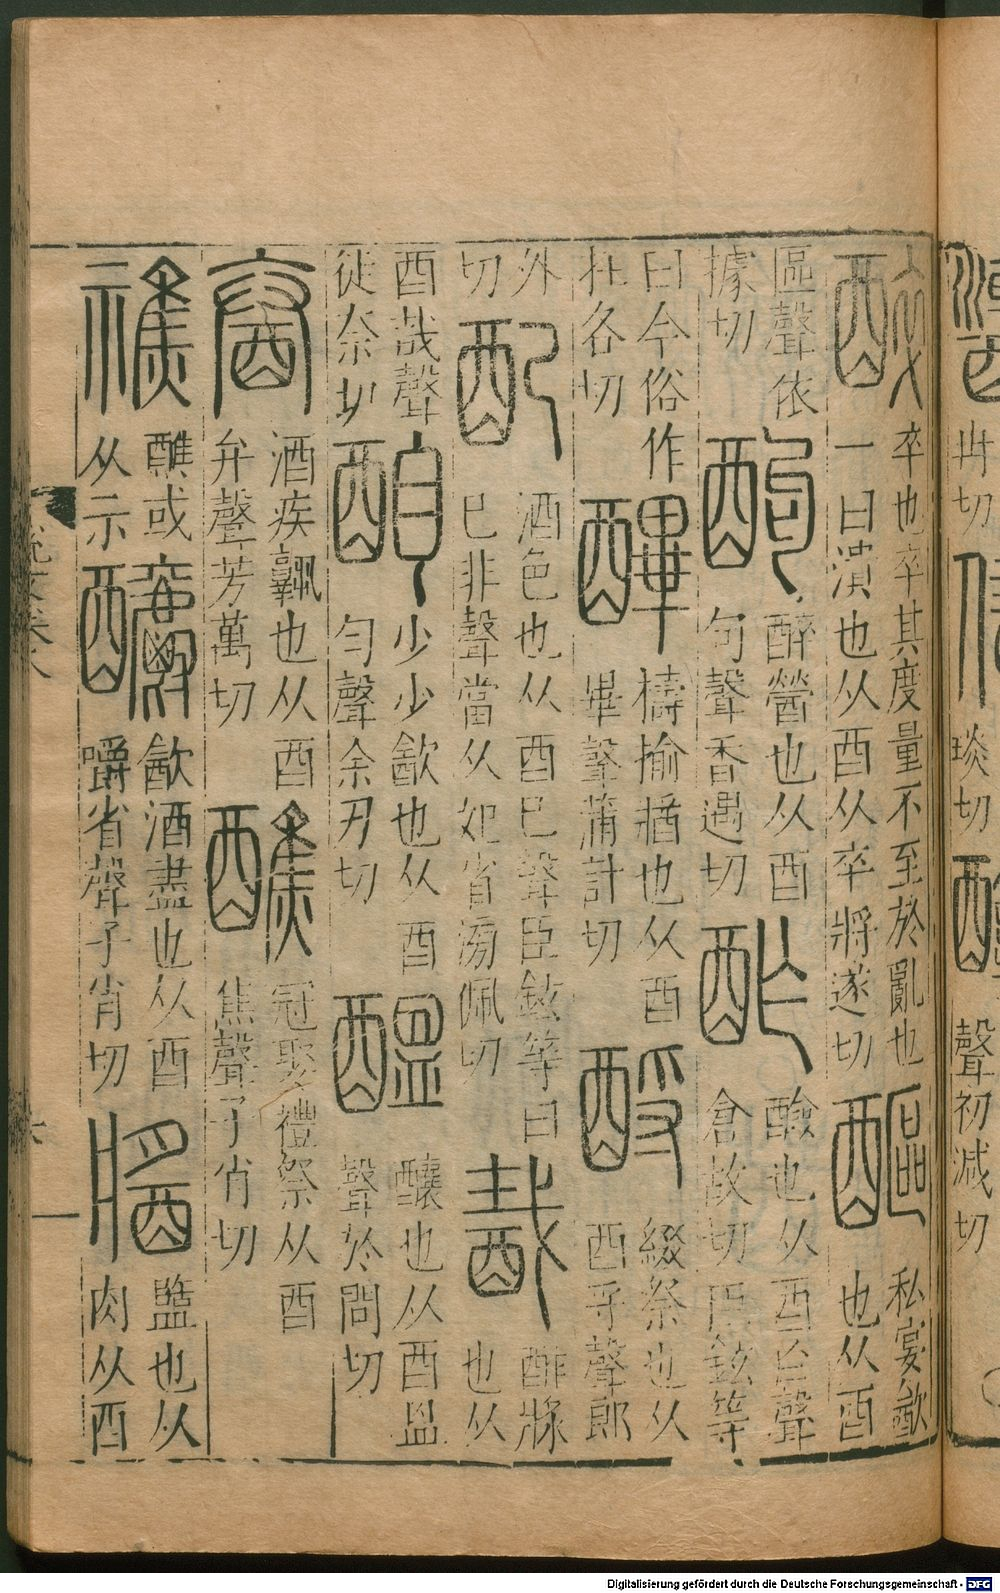 冉切
琰切
聲初減切
醉
卒也卒其度量不至於亂也
一曰潰也从酉从卒將遂切
醧
私宴㱃
也从酉
區聲依
據切
䣱
醉醟也从酉
句聲香遇切
酢
醶也从酉乍聲
倉故切臣鉉等
曰今俗作
在各切
擣榆牆也从酉
畢聲蒲計切
酹
綴祭也从
酉寽聲郎
外
切
配
酒色也从酉己聲臣鉉等曰
己非聲當从妃省滂佩切
酨
酢漿
也从
酉𢦏聲
徒奈切
酳
少少㱃也从酉
匀聲余刃切
醞
釀也从酉昷
聲於問切
酒疾孰也从酉
弁聲芳萬切
醮
冠娶禮祭从酉
焦聲子肖切
醮或
从示
釂
㱃酒盡也从酉
嚼省聲子肖切
醬
盬也从
肉从酉
Digitalisierung gefördert durch die Deutsche Forschungsgemeinschaft - DFG